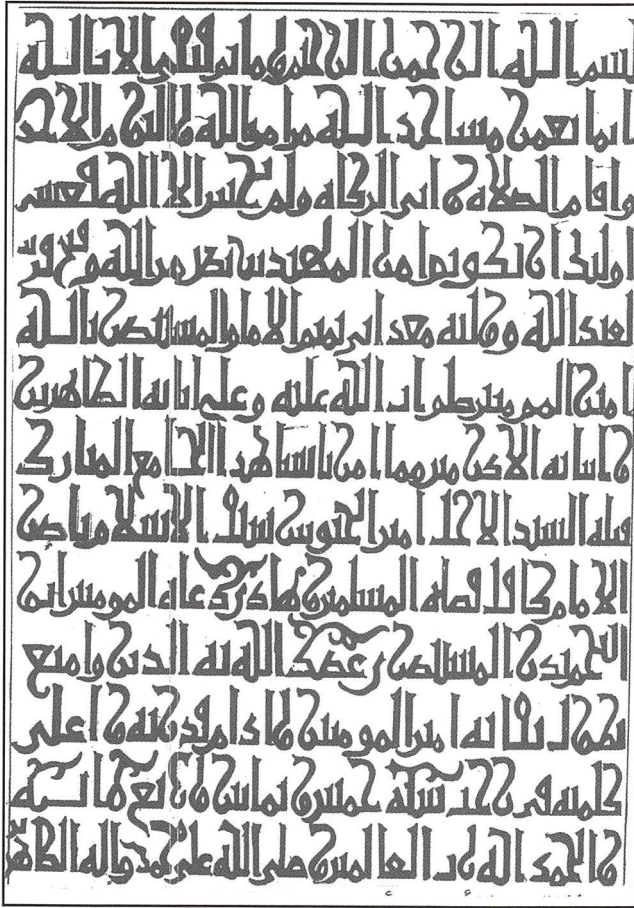 بسم الله الرحمن الرحيم وما توفيقي الا بالله
انما يعمر مساجد الله من امن بالله واليوم الاخر
واقام الصلاة واتى الزكاة ولم يخش الا الله فعسى
اولئك ان يكونوا من المهتدين نصر من الله وفتح قريب
لعبد الله ووليه معد ابي تميم الامام المستنصر بالله
امير المومنين صلوات الله عليه وعلى ابائه الطاهرين
وابنائه الاكرمين مما امر بانشاء هذا الجامع المبارك
فتاه السيد الاجل امير الجيوش سيف الاسلام ناصر
الامام كافل قضاة المسلمين وهادي دعاة المومنين ابو
النجم بدر المستنصري عضد الله به الدين وامتع
بطول بقائه امير المومنين وادام قدرته واعلى
كلمته في رجب سنة خمس وثمانين واربع مائة
والحمد لله رب العالمين وصلى الله على محمد واله الطاهرين